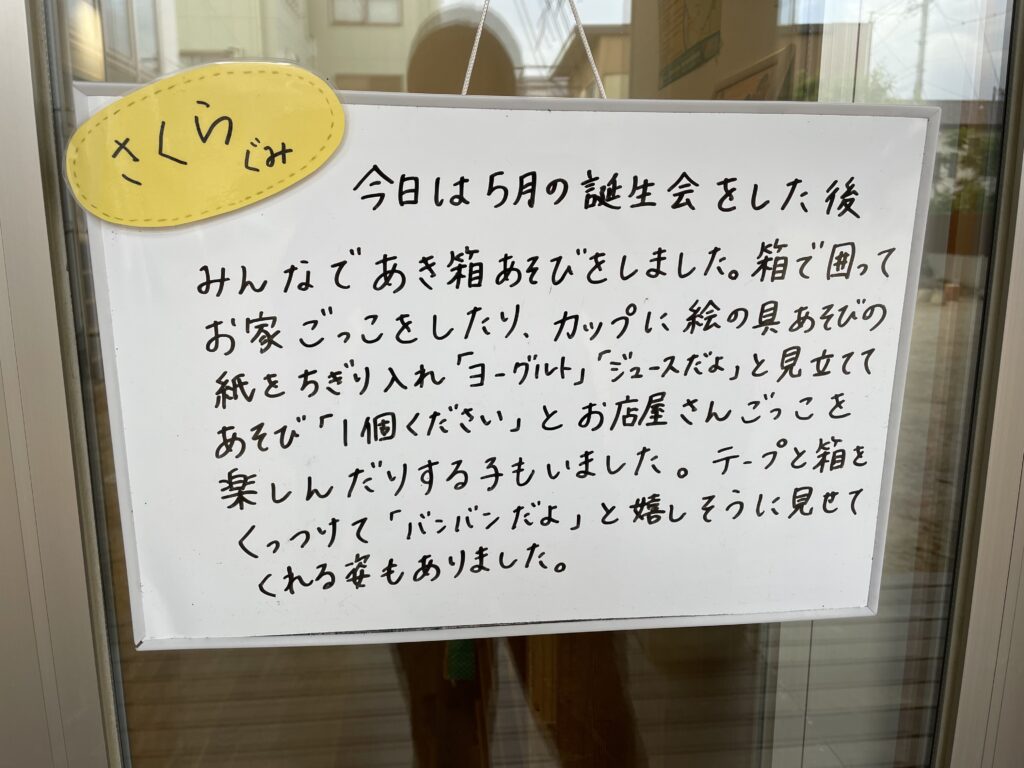 さくらぐみ
今日は5月の誕生会をした後
みんなであき箱あそびをしました。箱で囲って
お家ごっこをしたり、カップに絵の具あそびの
紙をちぎり入れ「ヨーグルト」「ジュースだよ」と見立てて
あそび「1個ください」とお店屋さんごっこを
楽しんだりする子もいました。テープと箱を
くっつけて「バンバンだよ」と嬉しそうに見せて
くれる姿もありました。